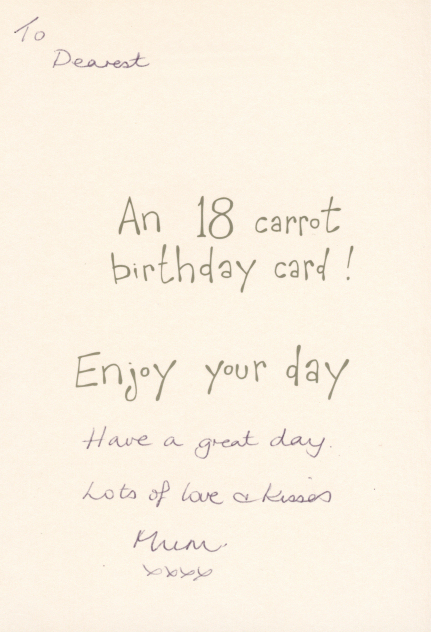 To
Dearest
An 18 carrot
birthday card!
Enjoy your day
Have a great day.
Lots of love & kisses
Mum
xxxx